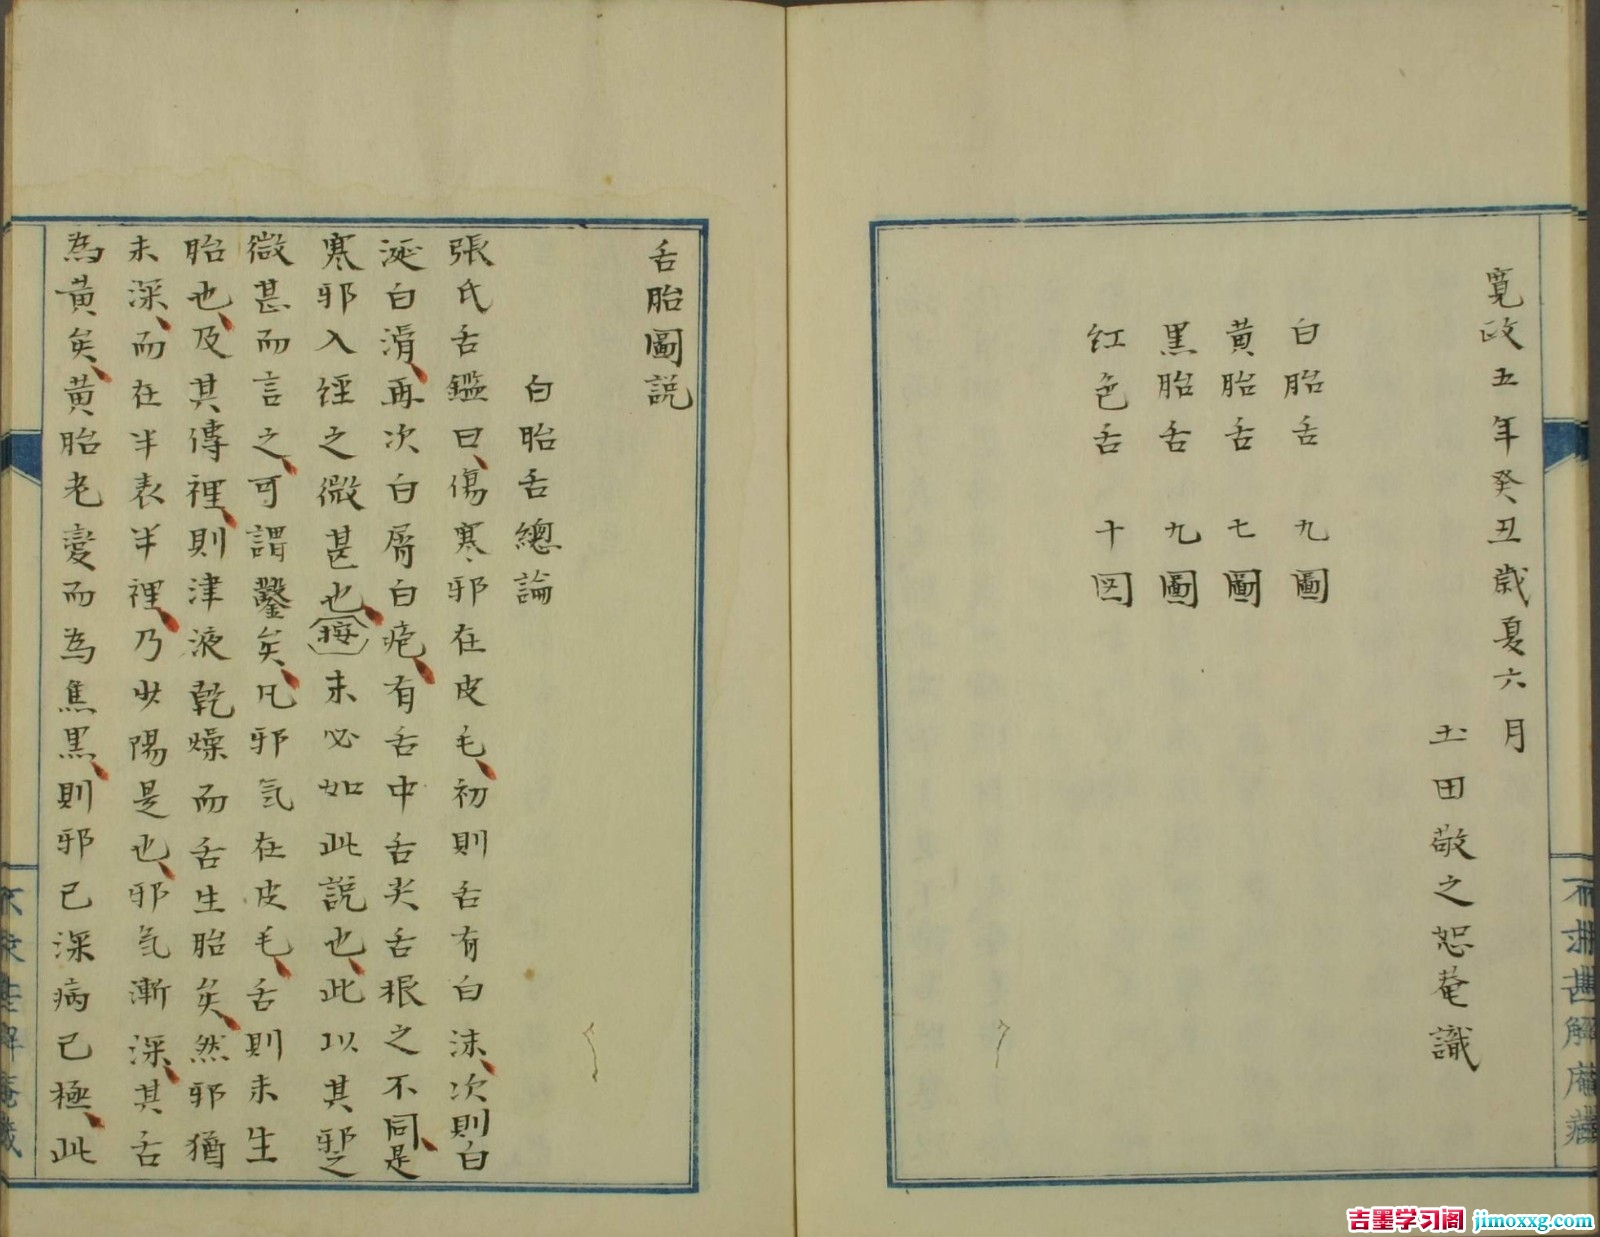 寛政五年癸丑歳夏六月
土田敬之恕菴識
白胎舌九圖
黄胎舌七圖
黒胎舌九圖
红色舌十図
不求甚解庵藏
舌胎圖説
白胎舌總論
張氏舌鑑曰傷寒邪在皮毛初則舌有白沫次則白
涎白滑再次白屑白疱有舌中舌尖舌根之不同是
寒邪入経之微甚也按未必如此説也此以其邪之
微甚而言之可謂鑿矣凡邪氣在皮毛舌則未生
胎也及其傳裡則津液乾燥而舌生胎矣然邪猶
未深而在半表半裡乃少陽是也邪气漸深其舌
為黄矣黄胎老変而為焦黒則邪已深病已極此
不求甚解庵藏
吉墨学习阁 jimoxxg.com